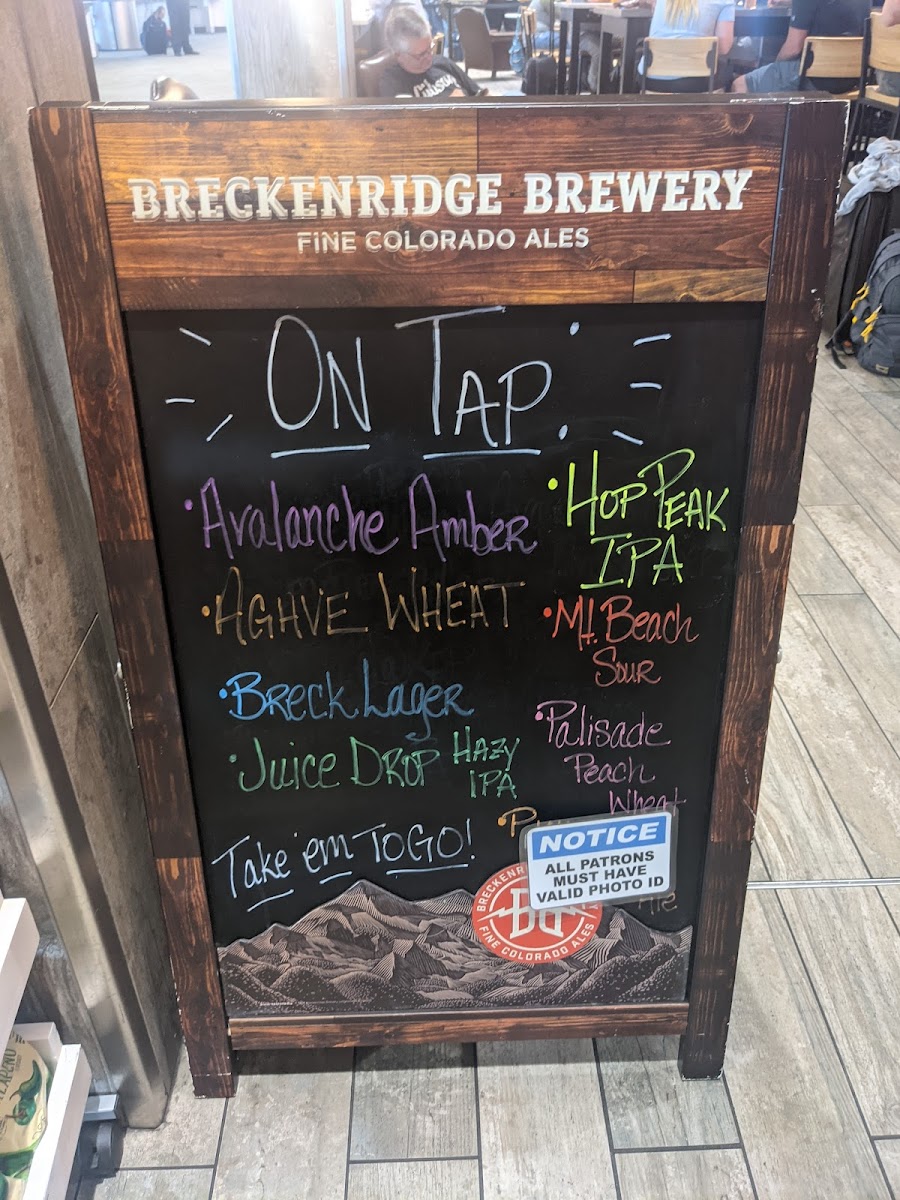 BRECKENRIDGE BREWERY
FINE COLORADO ALES
ON TAP
• Avalanche Amber
• AGAVE WHEAT
• BRECK LAGER
• JUICE DROP HAZY
IPA
• HOP PEAK
IPA
• Mt. Beach
Sour
• Palisade
Peach
Wheat
Ale
Take 'em TO GO!
NOTICE
ALL PATRONS
MUST HAVE
VALID PHOTO ID
FINE COLORADO ALES